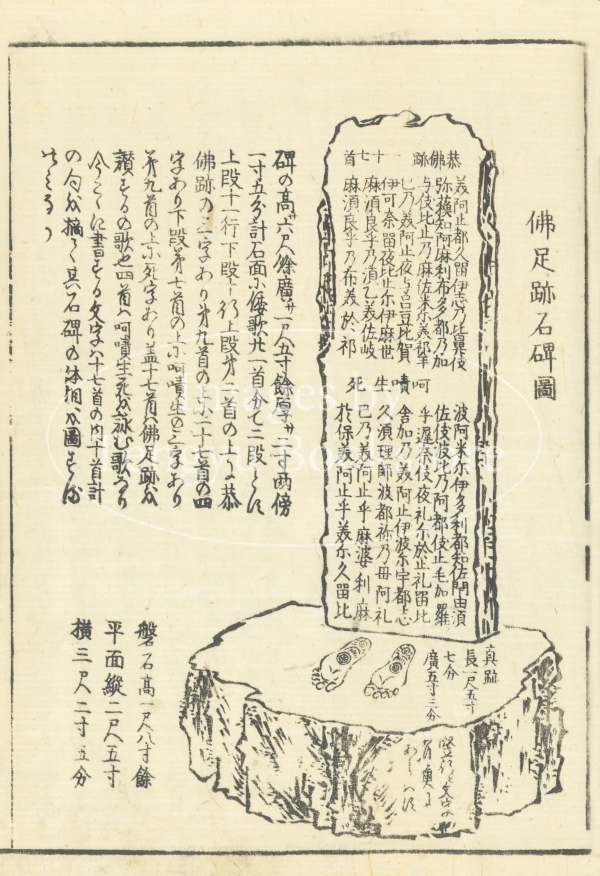 佛足跡石碑圖
恭佛跡 一十七首
義阿止都久留伊志乃比鼻伎
弥蘓知阿麻利布多都乃加
与伎比止乃麻佐米尓美祁牟
已乃義阿止夜与呂豆比賀
伊可奈留夜比止尓伊麻世
麻須良乎乃須乙義佐岐
麻須良乎乃布義於祁
呵嘖生死
波阿米尓伊多利都知佐閇由須
佐伎波比乃阿都伎止毛加羅
乎遲奈伎夜礼尓於止礼留比
舍加乃義阿止伊波尓宇都志
久須理師波都祢乃母阿礼
已乃義阿止乎麻婆利麻
於保義阿止乎義尓久留比
真跡
長一尺五寸
七分
廣五寸三分
碑の高サ六尺餘廣サ一尺五寸餘厚サ二寸両傍
一寸五分計石面小倭歌廿一首分て二段とす
上段十一行下段十行上段第二首の上に恭
佛跡の三字あり第九首の上尓一十七首の四
字あり下段第七首の上尓呵嘖生の三字あり
第九首の上尓死字あり盖十七首ハ佛足跡を
讃するの歌也四首ハ呵嘖生死を詠む歌なり
今こゝに書する文字ハ十七首の内十首計
の句を摘て其石碑の体相を圖する而
已
磐石高一尺八寸餘
平面縱二尺五寸
横三尺二寸五分
Images by